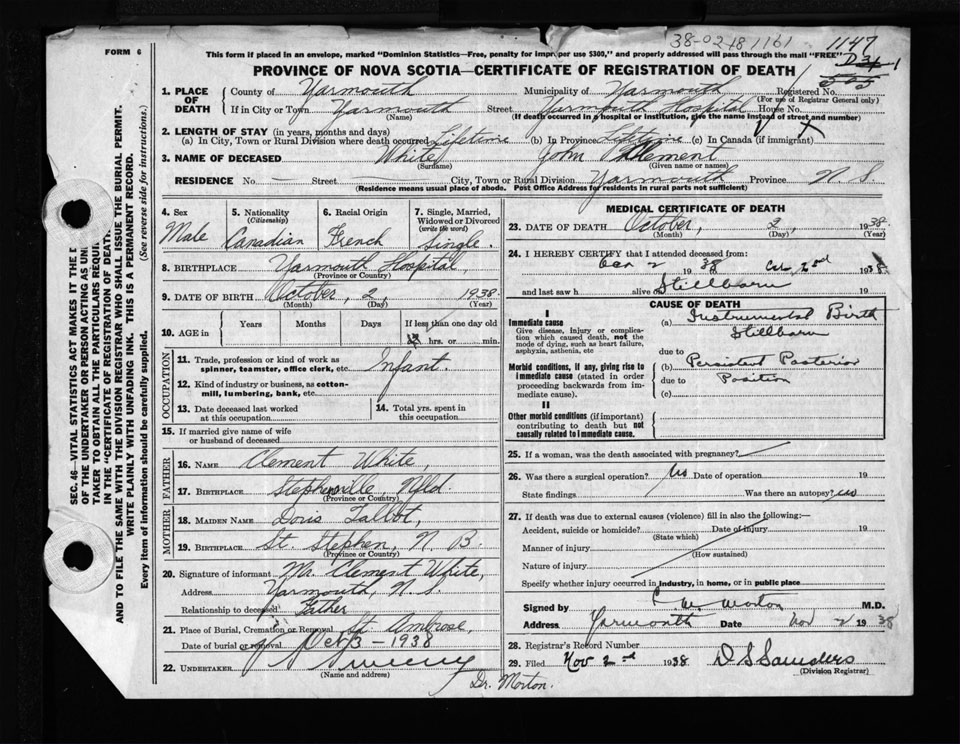 38-0248 1161
1147
FORM 6
This form if placed in an envelope, marked "Dominion Statistics—Free, penalty for improper use $300," and properly addressed will pass through the mail "FREE"
PROVINCE OF NOVA SCOTIA—CERTIFICATE OF REGISTRATION OF DEATH
1. PLACE OF DEATH County of Yarmouth Municipality of Yarmouth Registered No.
(For use of Registrar General only)
If in City or Town Yarmouth Street Yarmouth Hospital House No.
(Name) (If death occurred in a hospital or institution, give the name instead of street and number)
2. LENGTH OF STAY (in years, months and days)
(a) In City, Town or Rural Division where death occurred Lifetime (b) In Province Lifetime (c) In Canada (if immigrant) X
3. NAME OF DECEASED White John Clement
(Surname) (Given name or names)
RESIDENCE No. — Street City, Town or Rural Division Yarmouth Province N. S.
(Residence means usual place of abode. Post Office Address for residents in rural parts not sufficient)
4. Sex
Male
5. Nationality
(Citizenship)
Canadian
6. Racial Origin
French
7. Single, Married, Widowed or Divorced
(write the word)
Single.
8. BIRTHPLACE Yarmouth Hospital,
(Province or Country)
9. DATE OF BIRTH October, 2, 1938
(Month) (Day) (Year)
10. AGE in
Years Months Days If less than one day old
hrs. or min.
OCCUPATION
11. Trade, profession or kind of work as
spinner, teamster, office clerk, etc. Infant.
12. Kind of industry or business, as cotton-
mill, lumbering, bank, etc.
13. Date deceased last worked
at this occupation
14. Total yrs. spent in
this occupation
15. If married give name of wife
or husband of deceased
FATHER
16. NAME Clement White,
17. BIRTHPLACE Stephenville Nfld.
(Province or Country)
MOTHER
18. MAIDEN NAME Doris Talbot,
19. BIRTHPLACE St. Stephen, N. B.
(Province or Country)
20. Signature of informant Mr. Clement White,
Address Yarmouth, N. S.
Relationship to deceased Father
21. Place of Burial, Cremation or Removal St. Ambrose,
Date of burial or removal Oct 3 - 1938
22. UNDERTAKER Sweeny
(Name and address)
Dr. Morton.
MEDICAL CERTIFICATE OF DEATH
23. DATE OF DEATH October, 2, 1938
(Month) (Day) (Year)
24. I HEREBY CERTIFY that I attended deceased from
Oct 2 1938 to Oct 2nd 1938
and last saw h alive on Stillborn 19
CAUSE OF DEATH
I
Immediate cause
Give disease, injury or complication which caused death, not the mode of dying, such as heart failure, asphyxia, asthenia, etc
(a) Instrumental Birth
Stillborn
due to
Morbid conditions, if any, giving rise to immediate cause (stated in order proceeding backwards from immediate cause).
(b) Persistent Posterior
due to Position
(c)
II
Other morbid conditions (if important) contributing to death but not causally related to immediate cause.
25. If a woman, was the death associated with pregnancy?
26. Was there a surgical operation? No Date of operation 19
State findings Was there an autopsy? no
27. If death was due to external causes (violence) fill in also the following:—
Accident, suicide or homicide? Date of injury 19
(State which)
Manner of injury
(How sustained)
Nature of injury
Specify whether injury occurred in industry, in home, or in public place
Signed by C. W. Morton M.D.
Address Yarmouth Date Nov 2 1938
28. Registrar's Record Number
29. Filed Nov 2nd 1938 D S Saunders
(Division Registrar)
TAKER TO OBTAIN ALL THE PARTICULARS
IN THE "CERTIFICATE OF REGISTRATION OF DEATH"
AND TO FILE THE SAME WITH THE DIVISION REGISTRAR WHO SHALL ISSUE THE BURIAL PERMIT.
WRITE PLAINLY WITH UNFADING INK. THIS IS A PERMANENT RECORD.
Every item of information should be carefully supplied. (See reverse side for instructions.)
SEC. 46—VITAL STATISTICS ACT MAKES IT THE
OF THE UNDERTAKER OR PERSON ACTING AS